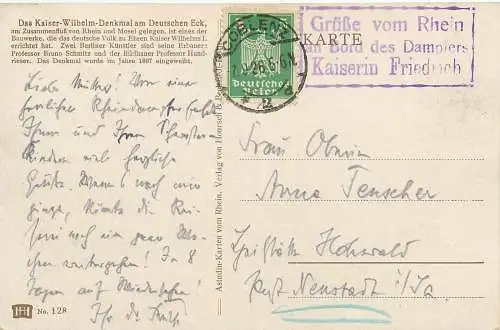 Das Kaiser-Wilhelm-Denkmal am Deutschen Eck,
am Zusammenfluß von Rhein und Mosel gelegen, ist eines der
Bauwerke, die das deutsche Volk zu Ehren Kaiser Wilhelms I.
errichtet hat. Zwei Berliner Künstler sind seine Erbauer:
Professor Bruno Schmitz und der Bildhauer Professor Hund-
rieser. Das Denkmal wurde im Jahre 1897 eingeweiht.
Liebe Mutter! Von einer
herrlichen Rheindampferfahrt
Ihnen und Ihren
Kindern viele herzliche
Grüße. Wenn es nach mir
ginge, könnte die
noch ein paar Wo-
chen weitergehen! In 8
Tagen auf Wiedersehen!
Ihr
No. 128
Astudin-Karten vom Rhein. Verlag von Hoursch &
COBLENZ
2
Deutsches
Reich
KARTE
Grüße vom Rhein
an Bord des Dampfers
Kaiserin Friedrich
Frau Oberin
Anna Tenscher
Hohwald
Post Neustadt i/Sa